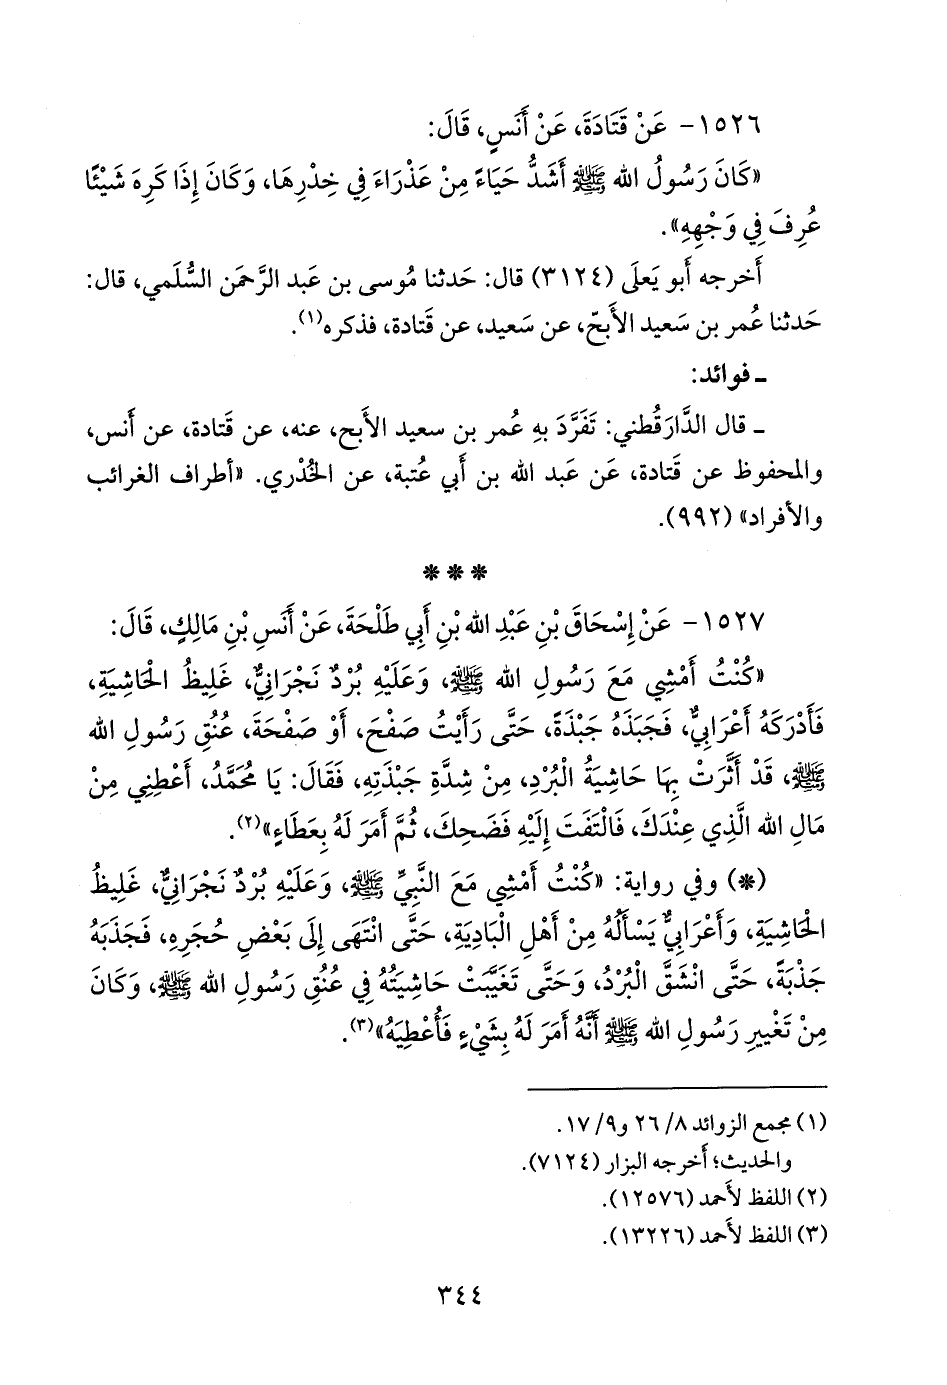 ١٥٢٦- عَنْ قَتَادَةَ، عَنْ أَنَسٍ، قَالَ:
«كَانَ رَسُولُ الله ﷺ أَشَدَّ حَيَاءً مِنْ عَذْرَاءَ فِي خِدْرِهَا، وَكَانَ إِذَا كَرِهَ شَيْئًا
عُرِفَ فِي وَجْهِهِ».
أخرجه أَبو يَعلَى (٣١٢٤) قال: حَدثنا مُوسى بن عَبد الرَّحمَن السُّلَمي، قال:
حَدثنا عُمر بن سَعيد الأَبحّ، عن سَعيد، عن قَتادة، فذكره(١).
ـ فوائد:
ـ قال الدَّارَقُطني: تَفَرَّدَ بِهِ عُمر بن سعيد الأَبح، عنه، عن قَتادة، عن أَنس،
والمحفوظ عن قَتادة، عَن عَبد الله بن أَبي عُتبة، عن الخُدْري. «أطراف الغرائب
والأفراد» (٩٩٢).
* * *
١٥٢٧- عَنْ إِسْحَاقَ بْنِ عَبْدِ الله بْنِ أَبِي طَلْحَةَ، عَنْ أَنَسِ بْنِ مَالِكٍ، قَالَ:
«كُنْتُ أَمْشِي مَعَ رَسُولِ الله ﷺ، وَعَلَيْهِ بُرْدٌ نَجْرَانِيٌّ، غَلِيظُ الْحَاشِيَةِ،
فَأَدْرَكَهُ أَعْرَابِيٌّ، فَجَبَذَهُ جَبْذَةً، حَتَّى رَأَيْتُ صَفْحَ، أَوْ صَفْحَةَ، عُنُقِ رَسُولِ الله
ﷺ، قَدْ أَثَّرَتْ بِهَا حَاشِيَةُ الْبُرْدِ، مِنْ شِدَّةِ جَبْذَتِهِ، فَقَالَ: يَا مُحَمَّدُ، أَعْطِنِي مِنْ
مَالِ الله الَّذِي عِنْدَكَ، فَالْتَفَتَ إِلَيْهِ فَضَحِكَ، ثُمَّ أَمَرَ لَهُ بِعَطَاءٍ»(٢).
(*) وفي رواية: «كُنْتُ أَمْشِي مَعَ النَّبِيِّ ﷺ، وَعَلَيْهِ بُرْدٌ نَجْرَانِيٌّ، غَلِيظُ
الْحَاشِيَةِ، وَأَعْرَابِيٌّ يَسْأَلُهُ مِنْ أَهْلِ الْبَادِيَةِ، حَتَّى انْتَهَى إِلَى بَعْضِ حُجَرِهِ، فَجَذَبَهُ
جَذْبَةً، حَتَّى انْشَقَّ الْبُرْدُ، وَحَتَّى تَغَيَّبَتْ حَاشِيَتُهُ فِي عُنُقِ رَسُولِ الله ﷺ، وَكَانَ
مِنْ تَغْيِيرِ رَسُولِ الله ﷺ أَنَّهُ أَمَرَ لَهُ بِشَيْءٍ فَأُعْطِيَهُ»(٣).
(١) مجمع الزوائد ٨/ ٢٦ و٩/ ١٧.
والحديث؛ أَخرجه البزار (٧١٢٤).
(٢) اللفظ لأَحمد (١٢٥٧٦).
(٣) اللفظ لأَحمد (١٣٢٢٦).
٣٤٤